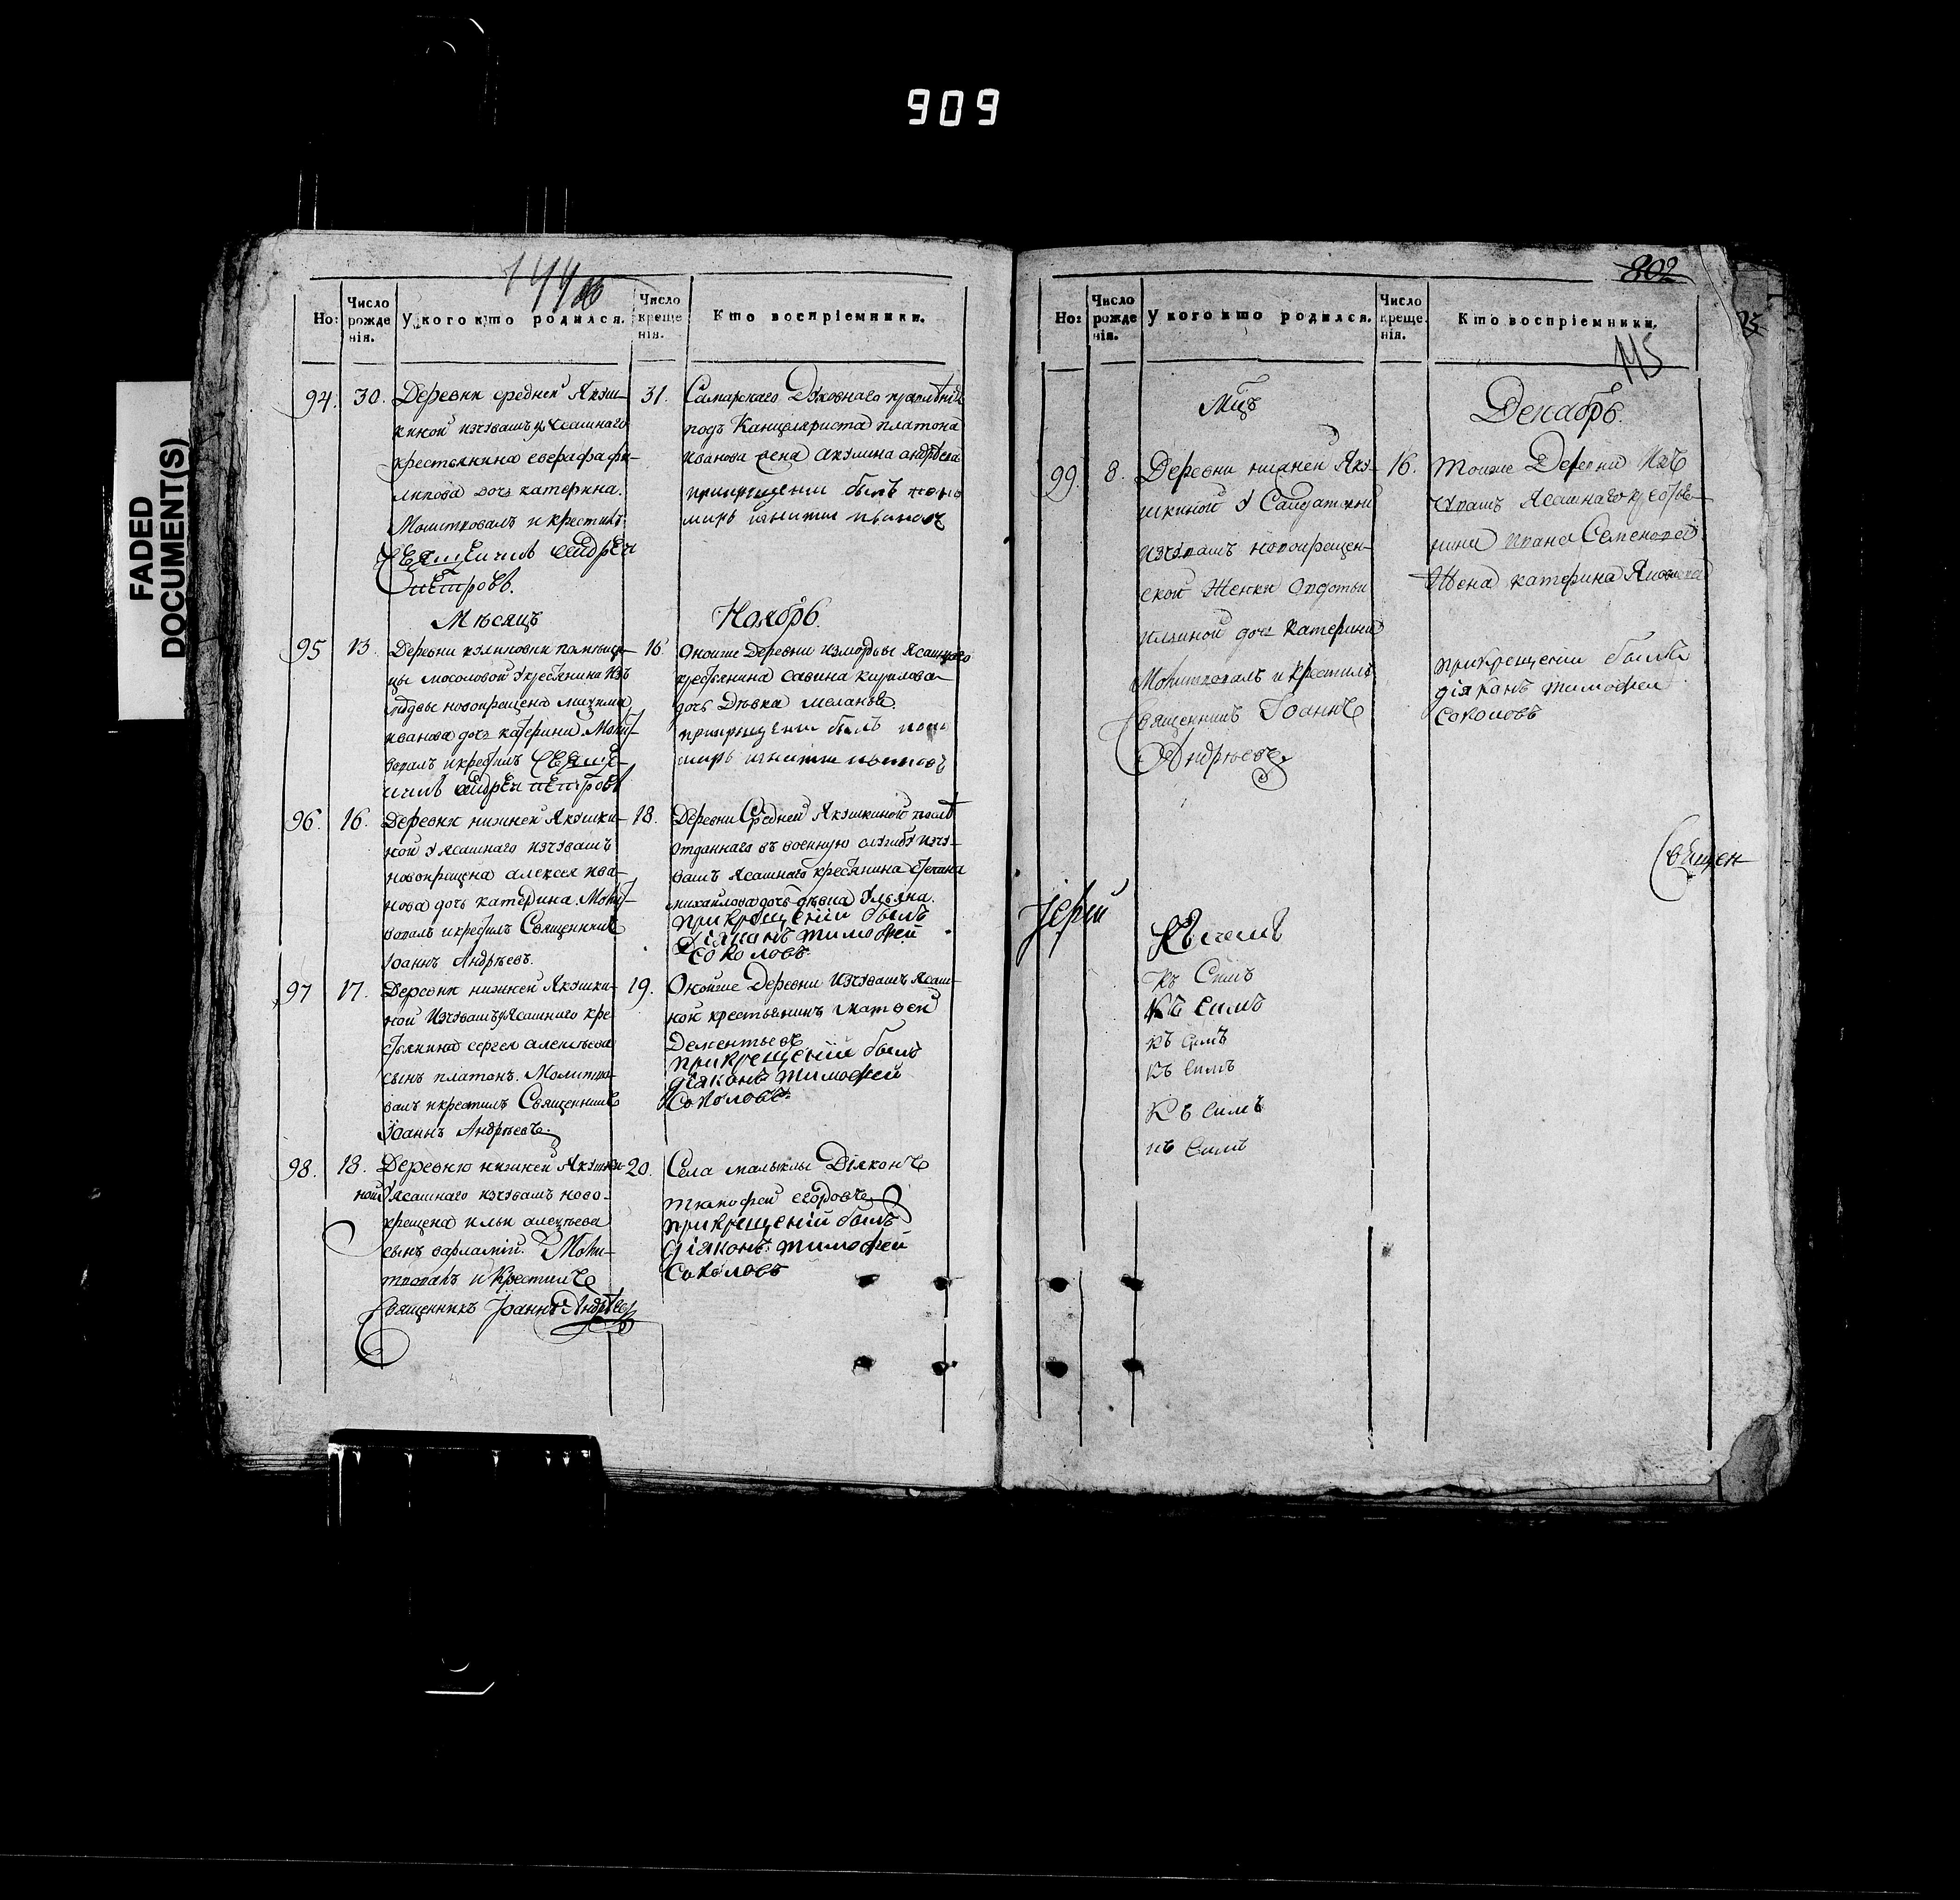 909
FADED
DOCUMENT(S)
144
Но:
Число рожденія.
У кого кто родился.
Число крещенія.
Кто воспріемники.
94.
30.
Деревни средней Якуш-
киной изчувашъ ясашнаго
крестьянина
дочь катерина.
Молитвовалъ и крестилъ
священникъ андрей
петровъ.
31.
Самарскаго Духовнаго правленія
подъ Канцеляриста платона
иванова жена акулина андреева
прикрещении былъ поно
марь никита ивановъ
Мѣсяцъ
Ноябрь.
95
13.
Деревни
цы мосоловой у крестьянина изъ
мордвы новокрещена
иванова дочь катерина. Молит-
вовалъ и крестилъ священ-
никъ андрей петровъ
16
Оноиже Деревни измордвы ясашнаго
крестьянина савина кирилова
дочь Дѣвка меланья.
прикрещении былъ поно
марь никита ивановъ
96.
16.
Деревни нижней Якушки-
ной у ясашнаго изчувашъ
новокрещена алексея ива-
нова дочь катерина. Молит-
вовалъ и крестилъ Священникъ
Іоаннъ Андрѣевъ.
18.
Деревни Средней Якушкиной
отданнаго въ военную службу изчу-
вашъ ясашнаго крестьянина степана
михайлова дочь дѣвка Ульяна.
прикрещеніи былъ
діяконъ тимофей
соколовъ.
97
17.
Деревни нижней Якушки-
ной изчувашъ у ясашнаго кре
стьянина сергея алексѣева
сынъ платонъ. Молитво-
валъ и крестилъ Священникъ
Іоаннъ Андрѣевъ.
19.
Оноиже Деревни изчувашъ ясаш-
ной крестьянинъ матвей
Дементьевъ
прикрещеніи былъ
діяконъ тимофей
Соколовъ.
98.
18.
Деревни нижней Якушки-
ной у ясашнаго изчувашъ ново-
крещена ильи алексѣева
сынъ варламій. Моли-
твовалъ и крестилъ
Священникъ Іоаннъ Андрѣевъ
20.
Села малыклы Діяконъ
тимофей егоровъ
прикрещеніи былъ
діяконъ тимофей
Соколовъ
802
145
Но:
Число рожденія.
У кого кто родился.
Число крещенія.
Кто воспріемники.
Мцъ
Декабрь.
99.
8.
Деревни нижней Яку-
шкиной у Салдатской
изчувашъ новокрещен-
ской Женки
ильиной дочь катерина
Молитвовалъ и крестилъ
Священникъ Іоаннъ
Андрѣевъ
16.
тоиже Деревни изъ
чувашъ ясашнаго крестья-
нина ивана Семенова
Жена катерина Яковлева
прикрещеніи былъ
діяконъ тимофей
Соколовъ
Священ-
Іерей
Къ семъ
къ Симъ
къ симъ
къ симъ
къ симъ
къ симъ
къ симъ